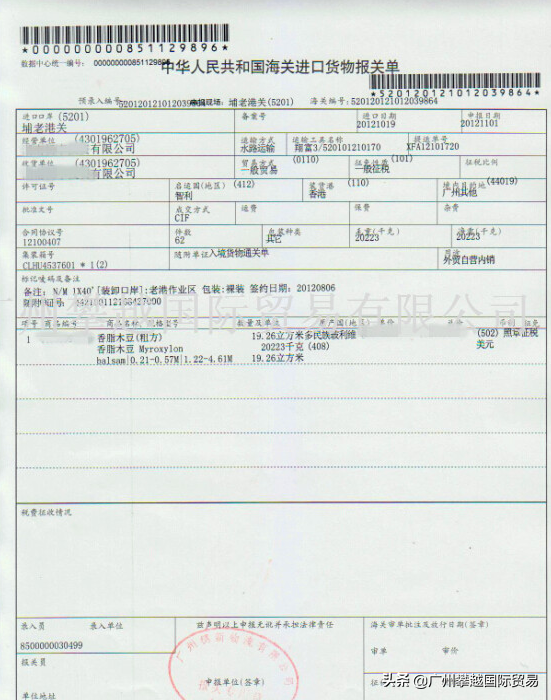 *000000000851129896*
数据中心统一编号: 000000000851129896
中华人民共和国海关进口货物报关单
*520120121012039864*
预录入编号: 520120121012039864 申报现场: 埔老港关(5201) 海关编号: 520120121012039864
进口口岸 (5201) 备案号 进口日期 申报日期
埔老港关 20121019 20121101
经营单位 (4301962705) 运输方式 运输工具名称 提运单号
有限公司 水路运输 翔富3/520101210170 XFA12101720
收货单位 (4301962705) 贸易方式 (0110) 征免性质 (101) 征税比例
有限公司 一般贸易 一般征税
许可证号 启运国(地区) (412) 装货港 (110) 境内目的地 (44019)
智利 香港 广州其他
批准文号 成交方式 运费 保费 杂费
CIF
合同协议号 件数 包装种类 毛重(千克) 净重(千克)
12100407 62 其它 20223 20223
集装箱号 随附单证 入境货物通关单 用途
CLHU4537601 * 1(2) 外贸自营内销
标记唛码及备注
备注: N/M 1X40' [装卸口岸]:老港作业区 包装:裸装 签约日期: 20120806
随附证号:
广州攀越国际贸易有限公司
项号 商品编号 商品名称、规格型号 数量及单位 原产国(地区) 单价 总价 币制 征免
1 香脂木豆(粗方) 19.26立方米 (502) 照章征税
香脂木豆 Myroxylon 20223千克 (408) 美元
balsam|0.21-0.57M|1.22-4.61M 19.26立方米
税费征收情况
录入员 录入单位 兹声明以上申报无讹并承担法律责任 海关审单批注及放行日期(签章)
8500000030499
报关员 审单 审价
申报单位(签章)
单位地址
头条 @广州攀越国际贸易